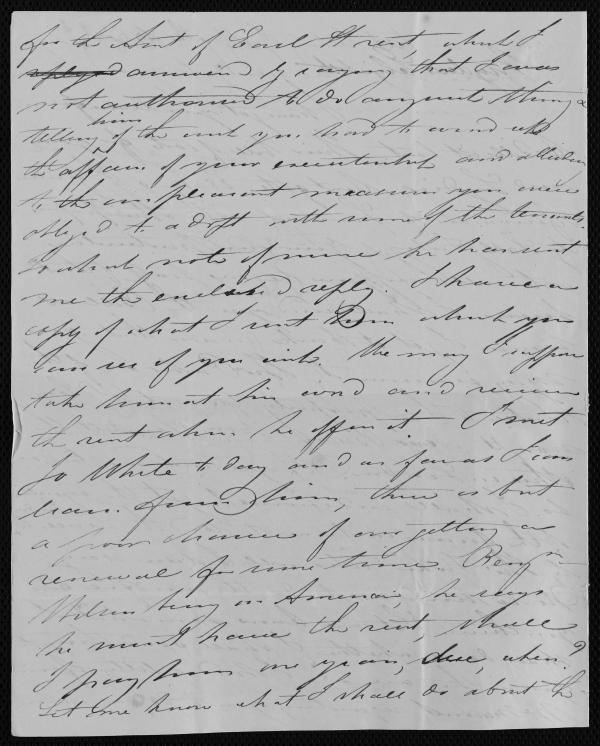 for the Amt of Earl St rent which I
replyed answered by saying that I was
not authorised to do any such thing &
telling him of the want you had to wind up
the affairs of your executorship and allude
to the unpleasant measures you were
obliged to adopt with some of the tenants,
to which note of mine he has sent
me the enclosed reply. I have a
copy of what I sent him which you
can see if you wish. We may I suppose
take him at his word and receive
the rent when he offers it I met
Jo White to day and as far as I can
learn from him, there is but
a poor chance of our getting a
renewal for some time. Benjn
Wilson being in America, he says
he must have the rent, shall
I pay him one years, due, when?
Let me know what I shall do about the